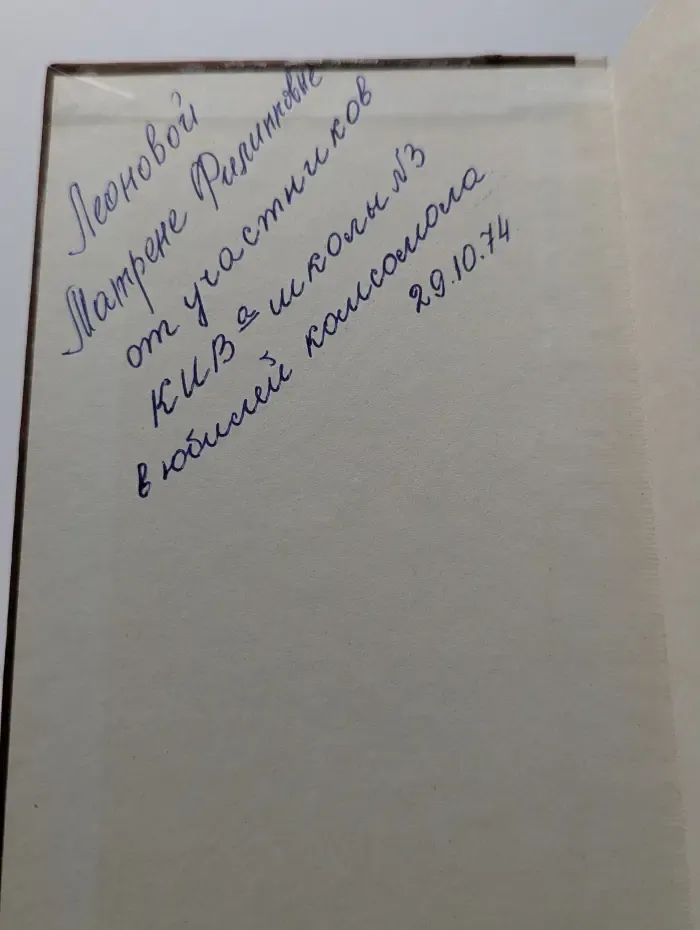 Леоновой
Матрене Филипповне
от участников
КИВа школы №3
в юбилей комсомола
29.10.74